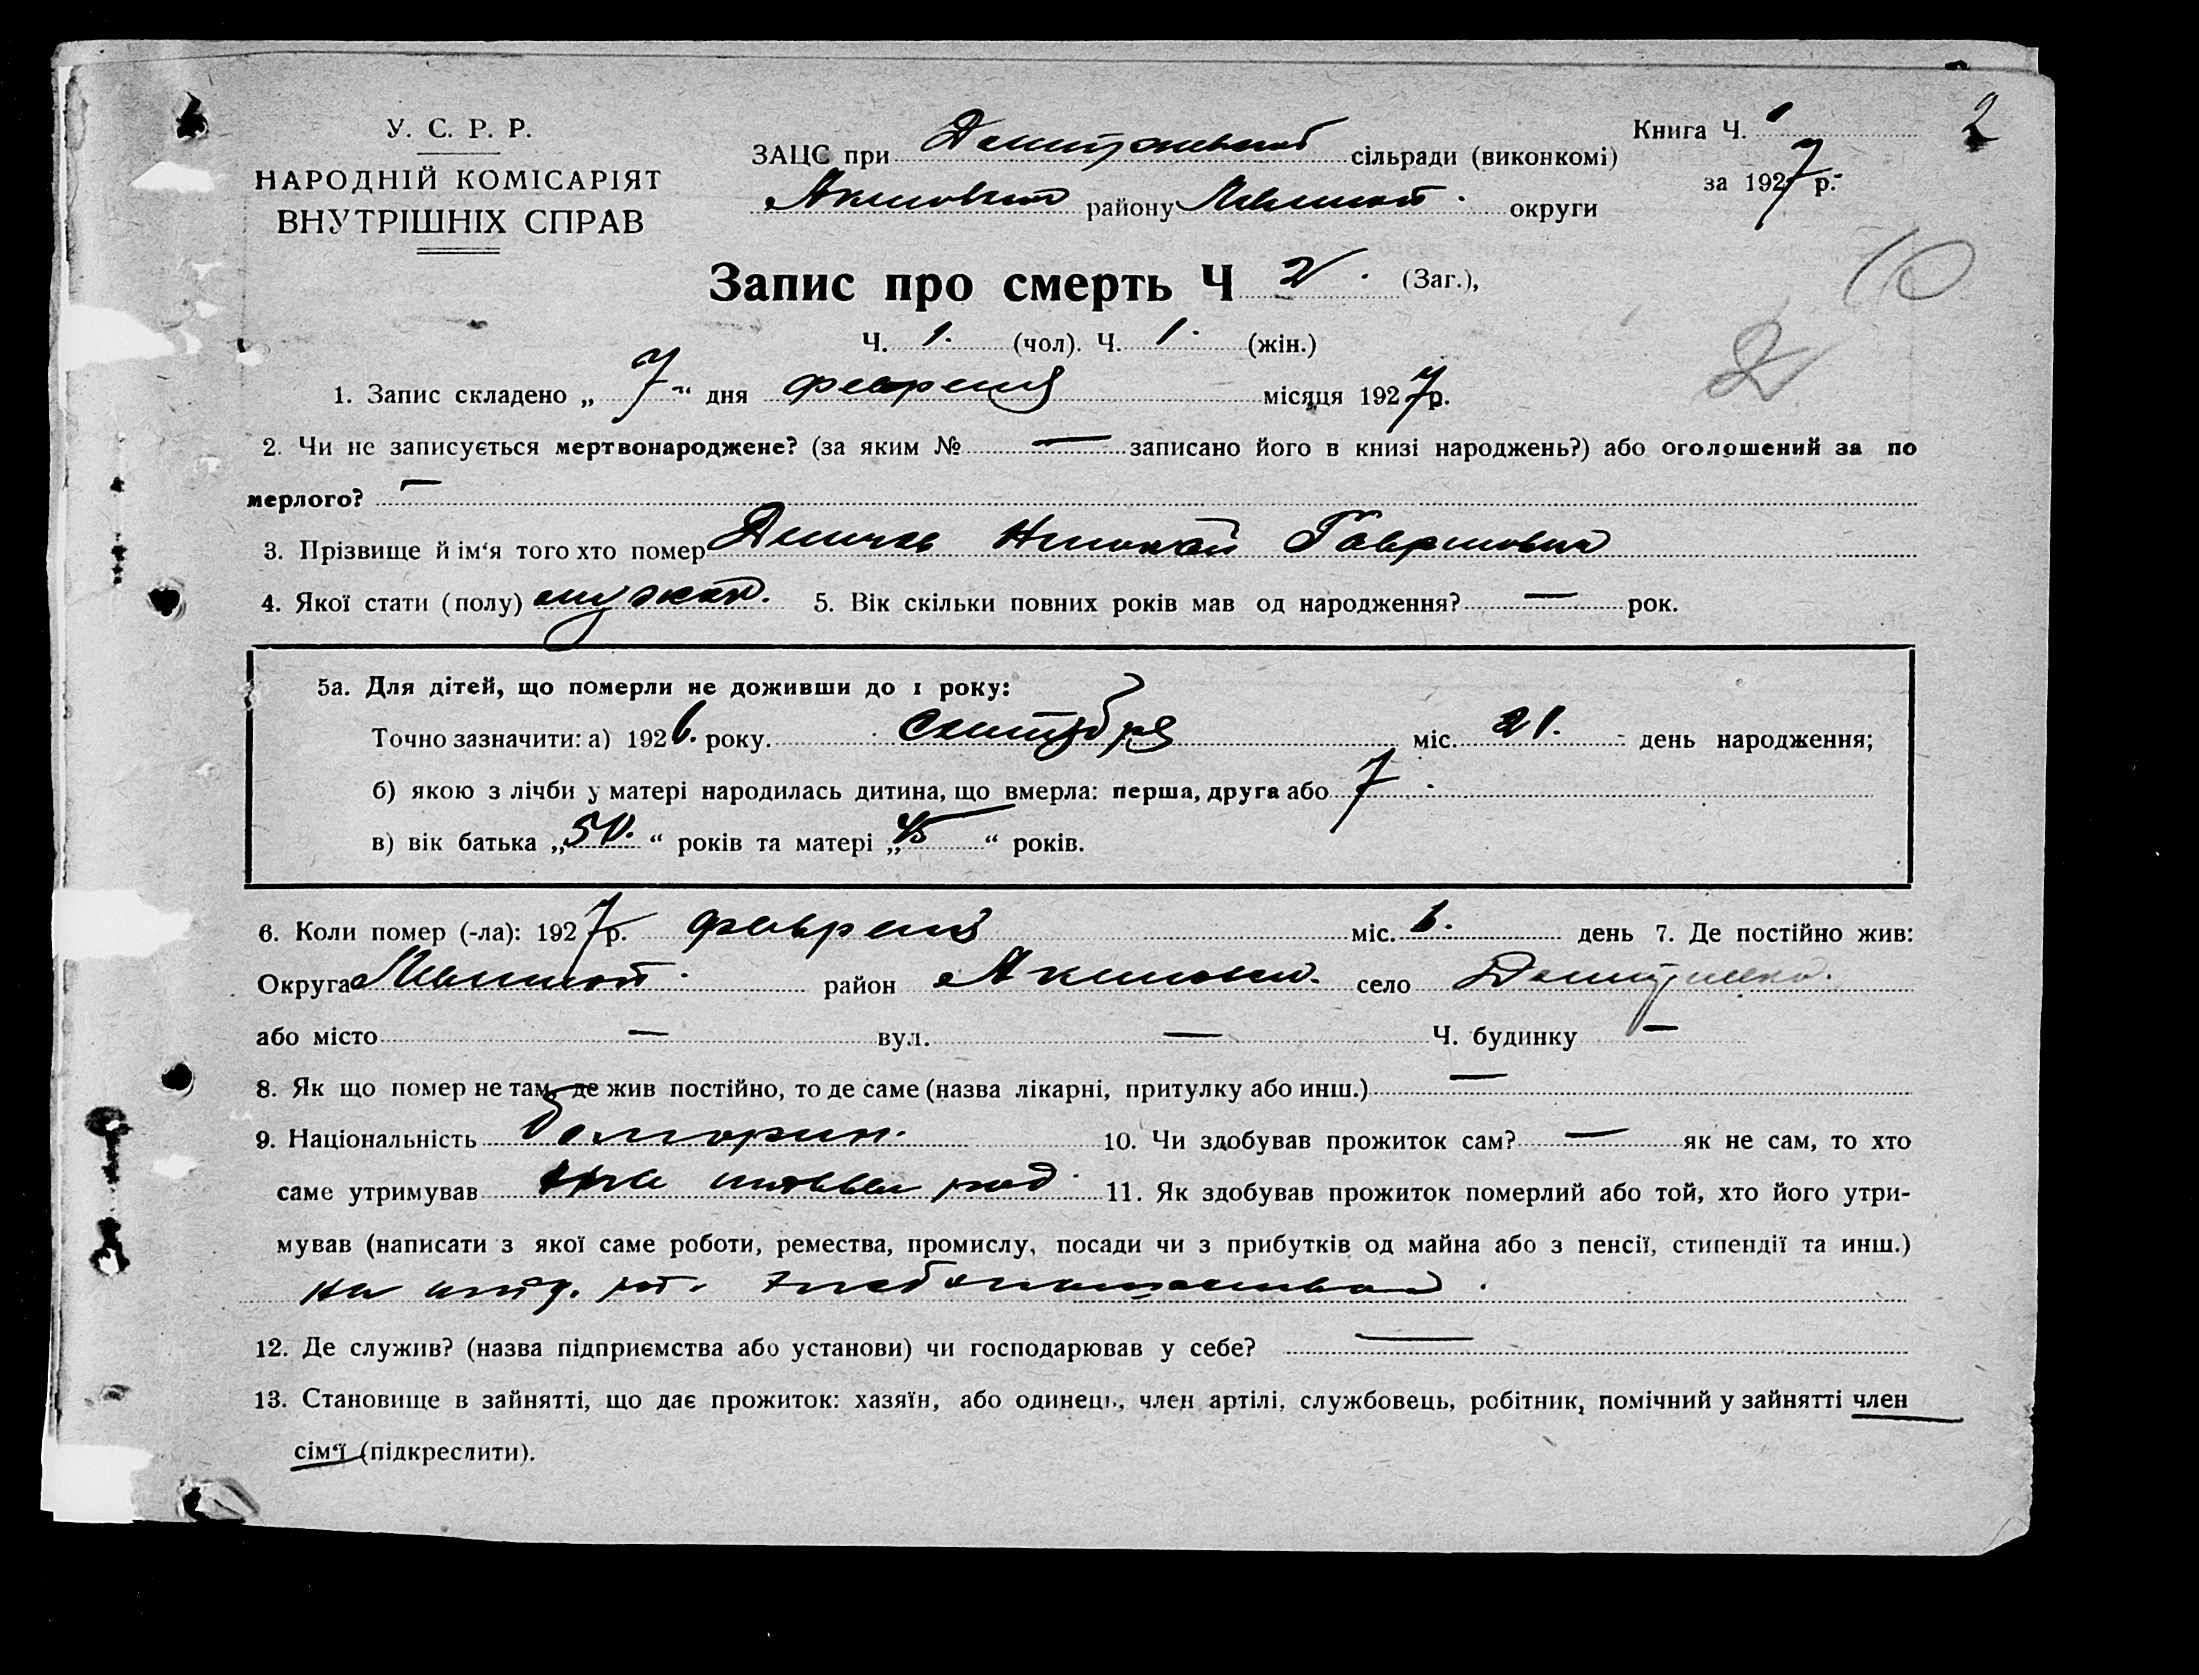 У. С. Р. Р.
НАРОДНІЙ КОМІСАРІЯТ
ВНУТРІШНІХ СПРАВ
ЗАЦС при сільради (виконкомі)
району округи
Книга Ч. 1
за 1927 р.
2
10
Запис про смерть Ч 2. (Заг.),
2
Ч. 1. (чол). Ч. 1. (жін.)
1. Запис складено „ 7 “ дня февраля місяця 1927 р.
2. Чи не записується мертвонароджене? (за яким № — записано його в книзі народжень?) або оголошений за по
мерлого? —
3. Прізвище й ім‘я того хто помер Николай Гаврилович
4. Якої стати (полу) мужск. 5. Вік скільки повних років мав од народження? — рок.
5а. Для дітей, що померли не доживши до 1 року:
Точно зазначити: а) 1926. року. Сентября міс. 21. день народження;
б) якою з лічби у матері народилась дитина, що вмерла: перша, друга або 7
в) вік батька „ 50. “ років та матері „ 45 “ років.
6. Коли помер (-ла): 1927 р. февраля міс. 6. день 7. Де постійно жив:
Округа район село
або місто — вул. — Ч. будинку —
8. Як що помер не там, де жив постійно, то де саме (назва лікарні, притулку або инш.) —
9. Національність болгарин. 10. Чи здобував прожиток сам? — як не сам, то хто
саме утримував 11. Як здобував прожиток померлий або той, хто його утри-
мував (написати з якої саме роботи, ремества, промислу, посади чи з прибутків од майна або з пенсії, стипендії та инш.)
хлебопашествова
12. Де служив? (назва підприємства або установи) чи господарював у себе? —
13. Становище в зайнятті, що дає прожиток: хазяїн, або одинець, член артілі, службовець, робітник, помічний у зайнятті член
сім‘ї (підкреслити).